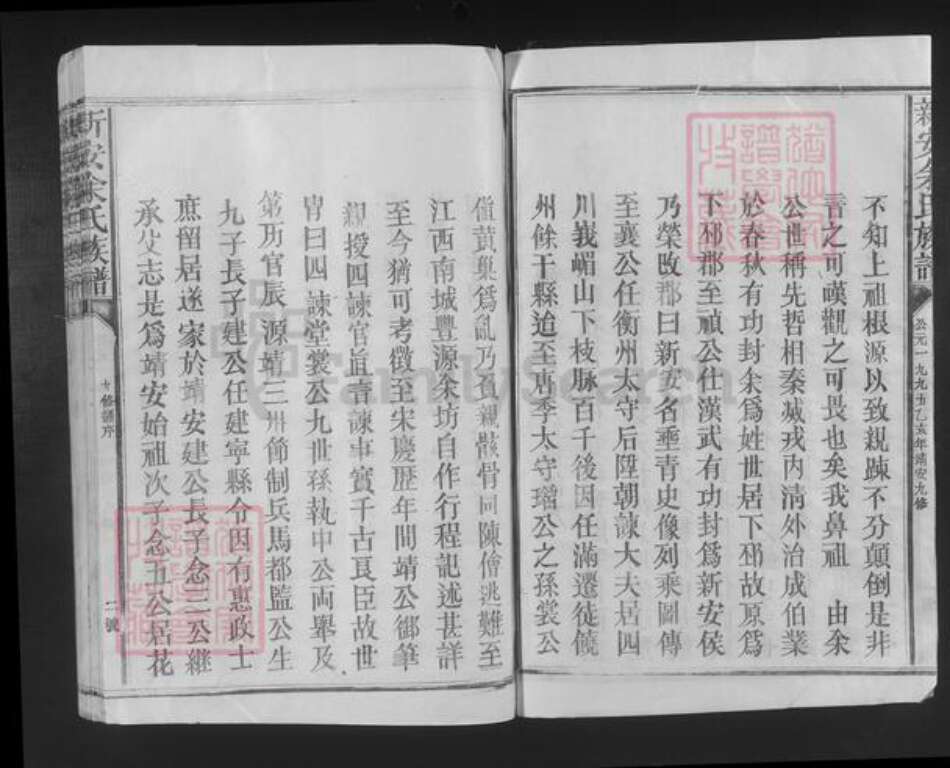 新安余氏族譜
公元一九九五乙亥年靖安九修
不知上祖根源以致親踈不分顛倒是非
言之可嘆觀之可畏也矣我鼻祖 由余
公世稱先哲相秦烕戎內淸外治成伯業
於春秋有功封余爲姓世居下邳故原爲
下邳郡至禎公仕漢武有功封爲新安侯
乃榮改郡曰新安名垂青史像列乘圖傳
至襄公任衡州太守后陞朝諫大夫居四
川峩嵋山下枝脉百千後因任滿遷徒饒
州餘干縣迨至唐李太守璿公之孫裳公
値黃巢爲亂乃負親骸骨同陳僧逃難至
江西南城豐源余坊自作行程記述甚詳
至今猶可考徵至宋慶歷年間靖公御筆
親授四諫官眞言諫事實千古良臣故世
冑曰四諫堂裳公九世孫執中公両舉及
第历官辰 源靖三州節制兵馬都監公生
九子長子建公任建寧縣令因有惠政士
庶留居遂家於靖安建公長子念三公継
承父志是爲靖安始祖次子念五公居花
新安余氏族譜
九修譜序
二號
FamilySearch